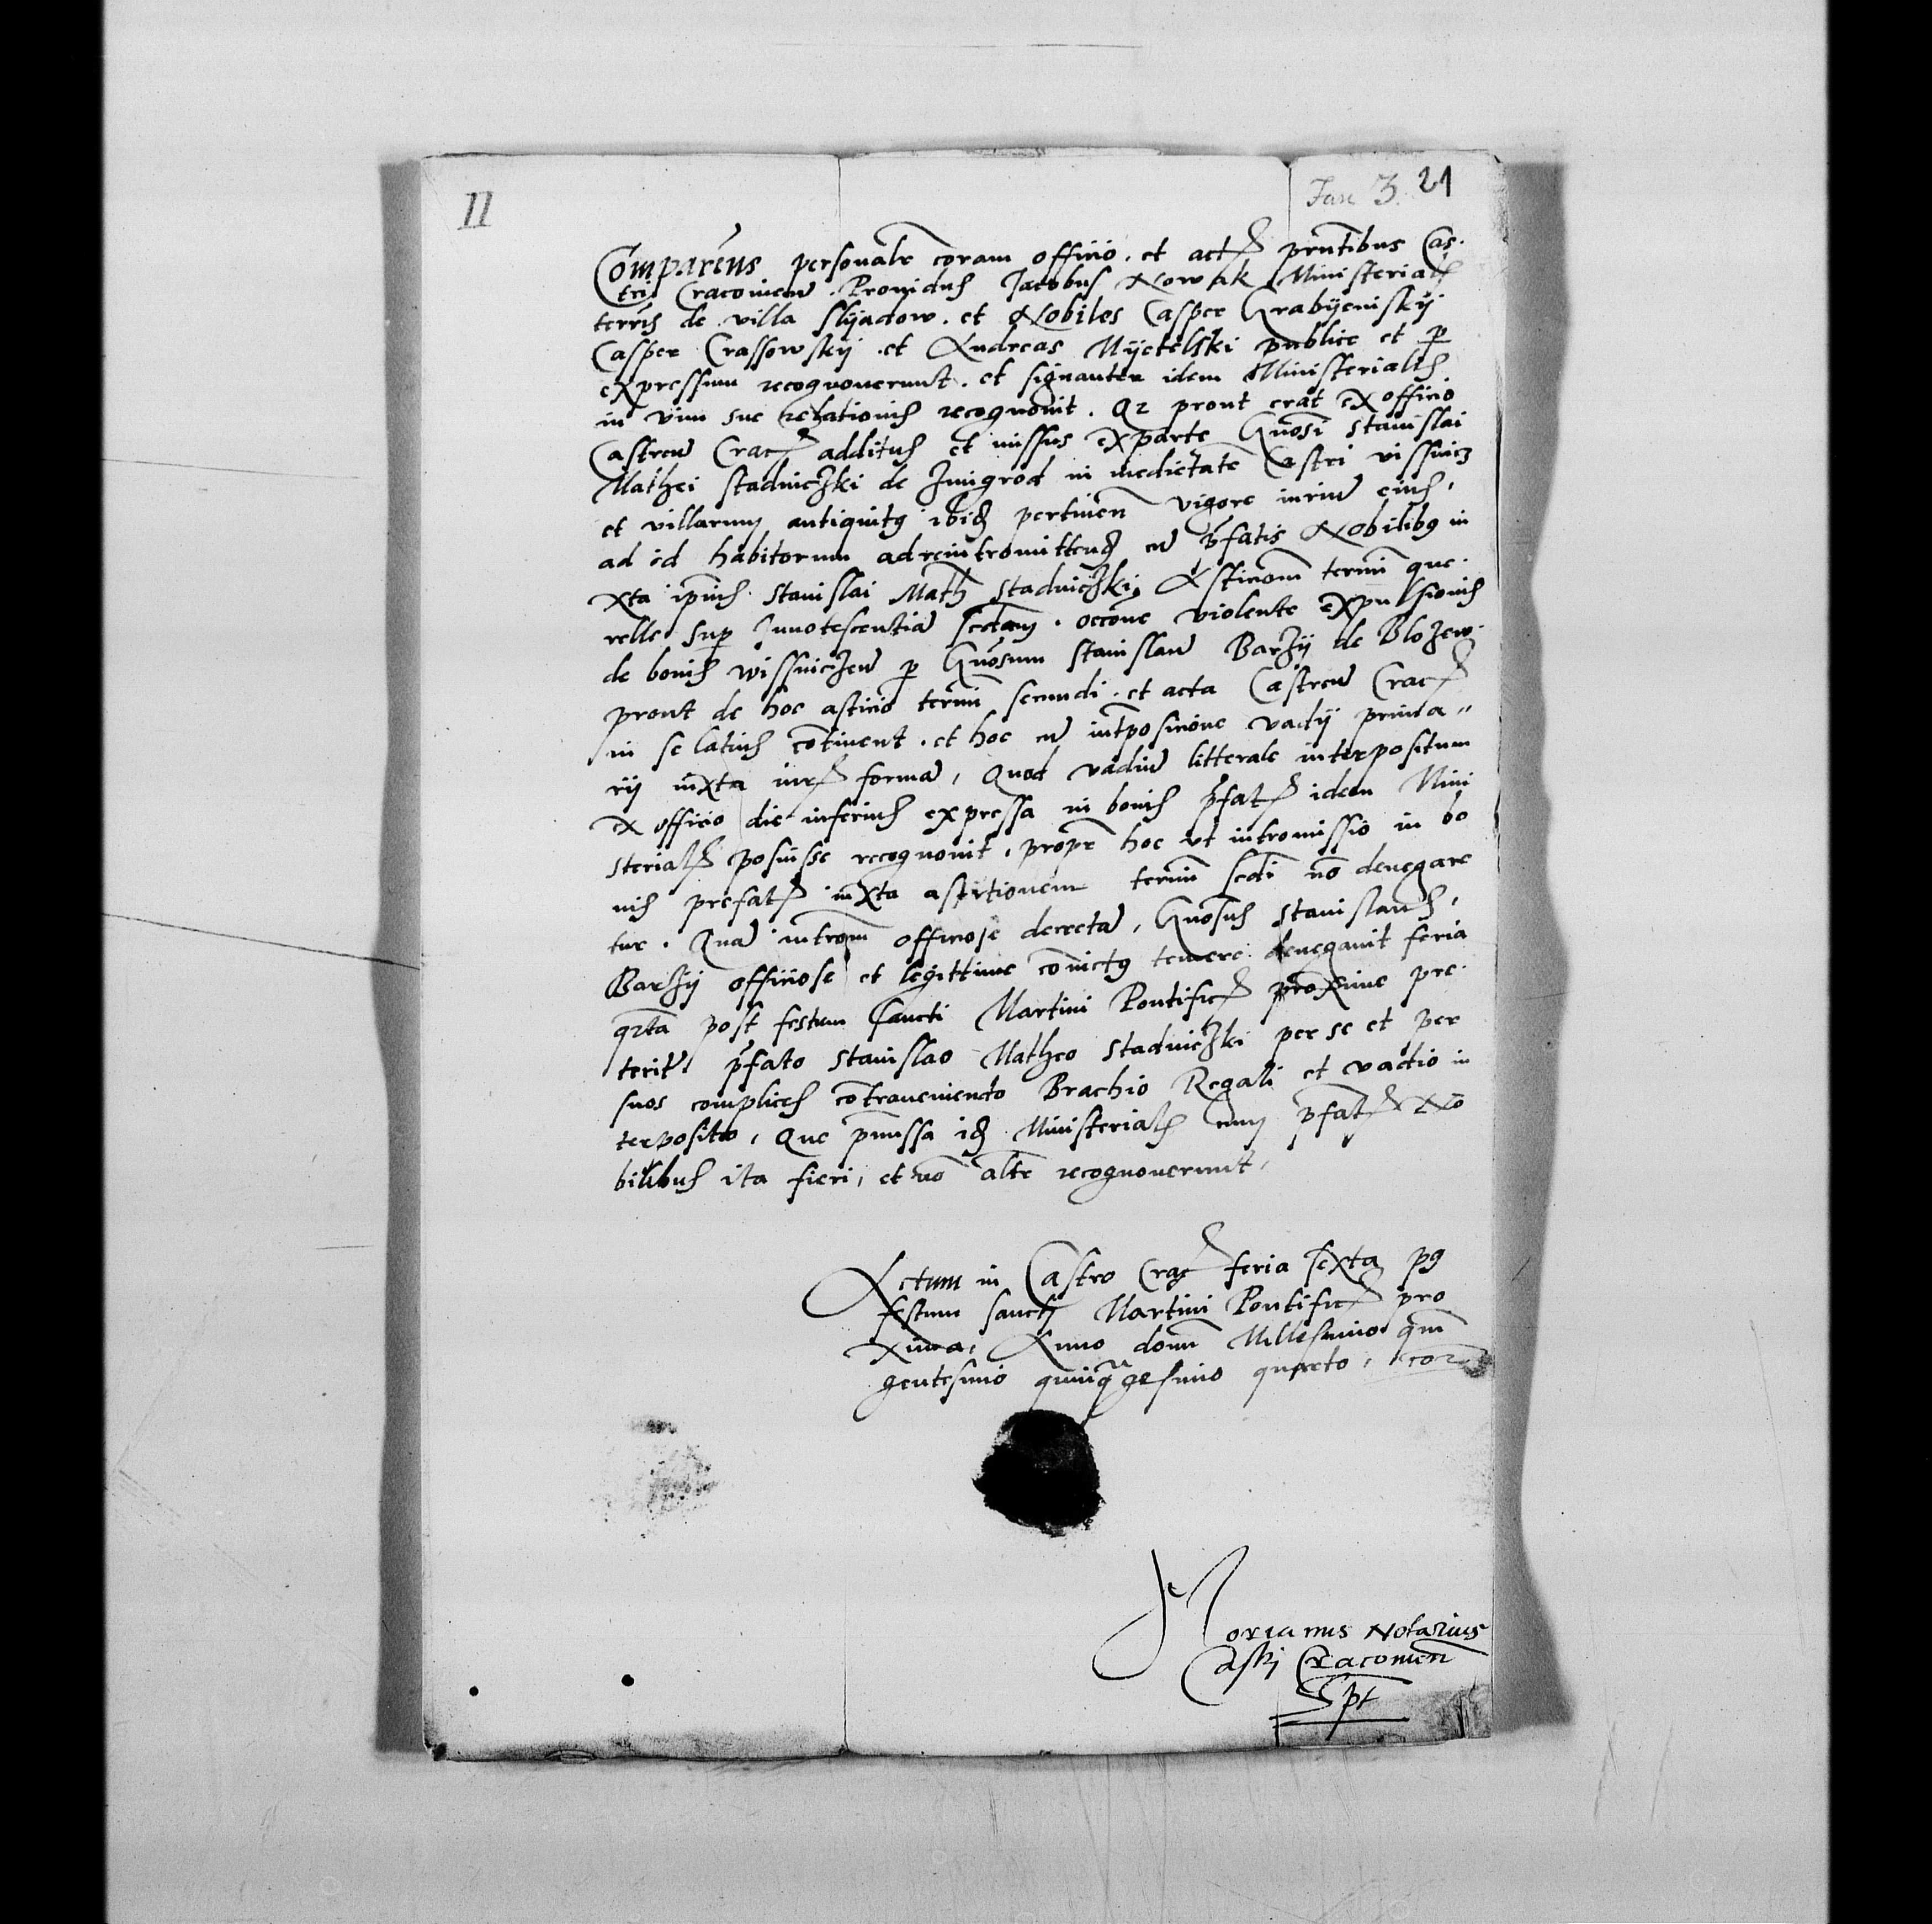 11
Jan 3. 21
Comparens personalr coram officio. et actis prntibus Cas
tri Cracovien. Providus Jacobus Nowak Ministerialis
terris de villa Slyadow. et Nobiles Casper Grabyeniskij
Casper Crassowskij et Andreas Myetelski publice et p
expressum recognoverunt. et signanter idem Ministerialis
in vim sue relationis recognovit. Qz prout erat ex officio
Castren Crac additus et missus ex parte Gnosi Stanislai
Mathei Stadniczki de Zmigrod in medietate Castri vissnicz
et villarum antiquitq ibid pertinen vigore iurium eius,
ad id habitorum ad reintromittend cu pfatis Nobilibq iu
xta ipius Stanislai Math Stadniczki, Astiacom termi que
relle sup Innotescentia sedam. occone violente expulsionis
de bonis Wissniczen p Gnosum Stanislau Barzij de Blozew
prout de hoc asticio termi secundi. et acta Castren Crac
in se latius continent. et hoc cu intposicione vadij prima"
rij iuxta iuris forma, Quod vadiu litterale interpositum
ex officio die inferius expressa in bonis pfatis idem Mini
sterialis posuisse recognovit, propr hoc ut intromissio in bo
nis prefatis iuxta astitionem termi sedi no denegare
tur. Qua introm officiose decreta, Gnosus Stanislaus,
Barzij officiose et legittime convictq temere denegavit feria
qrta post festum Sancti Martini Pontificis proxime pre
terit pfato Stanislao Matheo Stadniczki per se et per
suos complices contraveniendo Brachio Regali et vadio in
terposito, Que pmissa id Ministerialis cum pfatis No
bilibus ita fieri, et no altr recognoverunt,
Actum in Castro Crac feria sexta pq
festum Sancti Martini Pontificis pro
xima, Anno domi Millesimo qui
gentesimo quinqgesimo quarto, cor
Florianus Notarius
Castri Cracovien
Spt